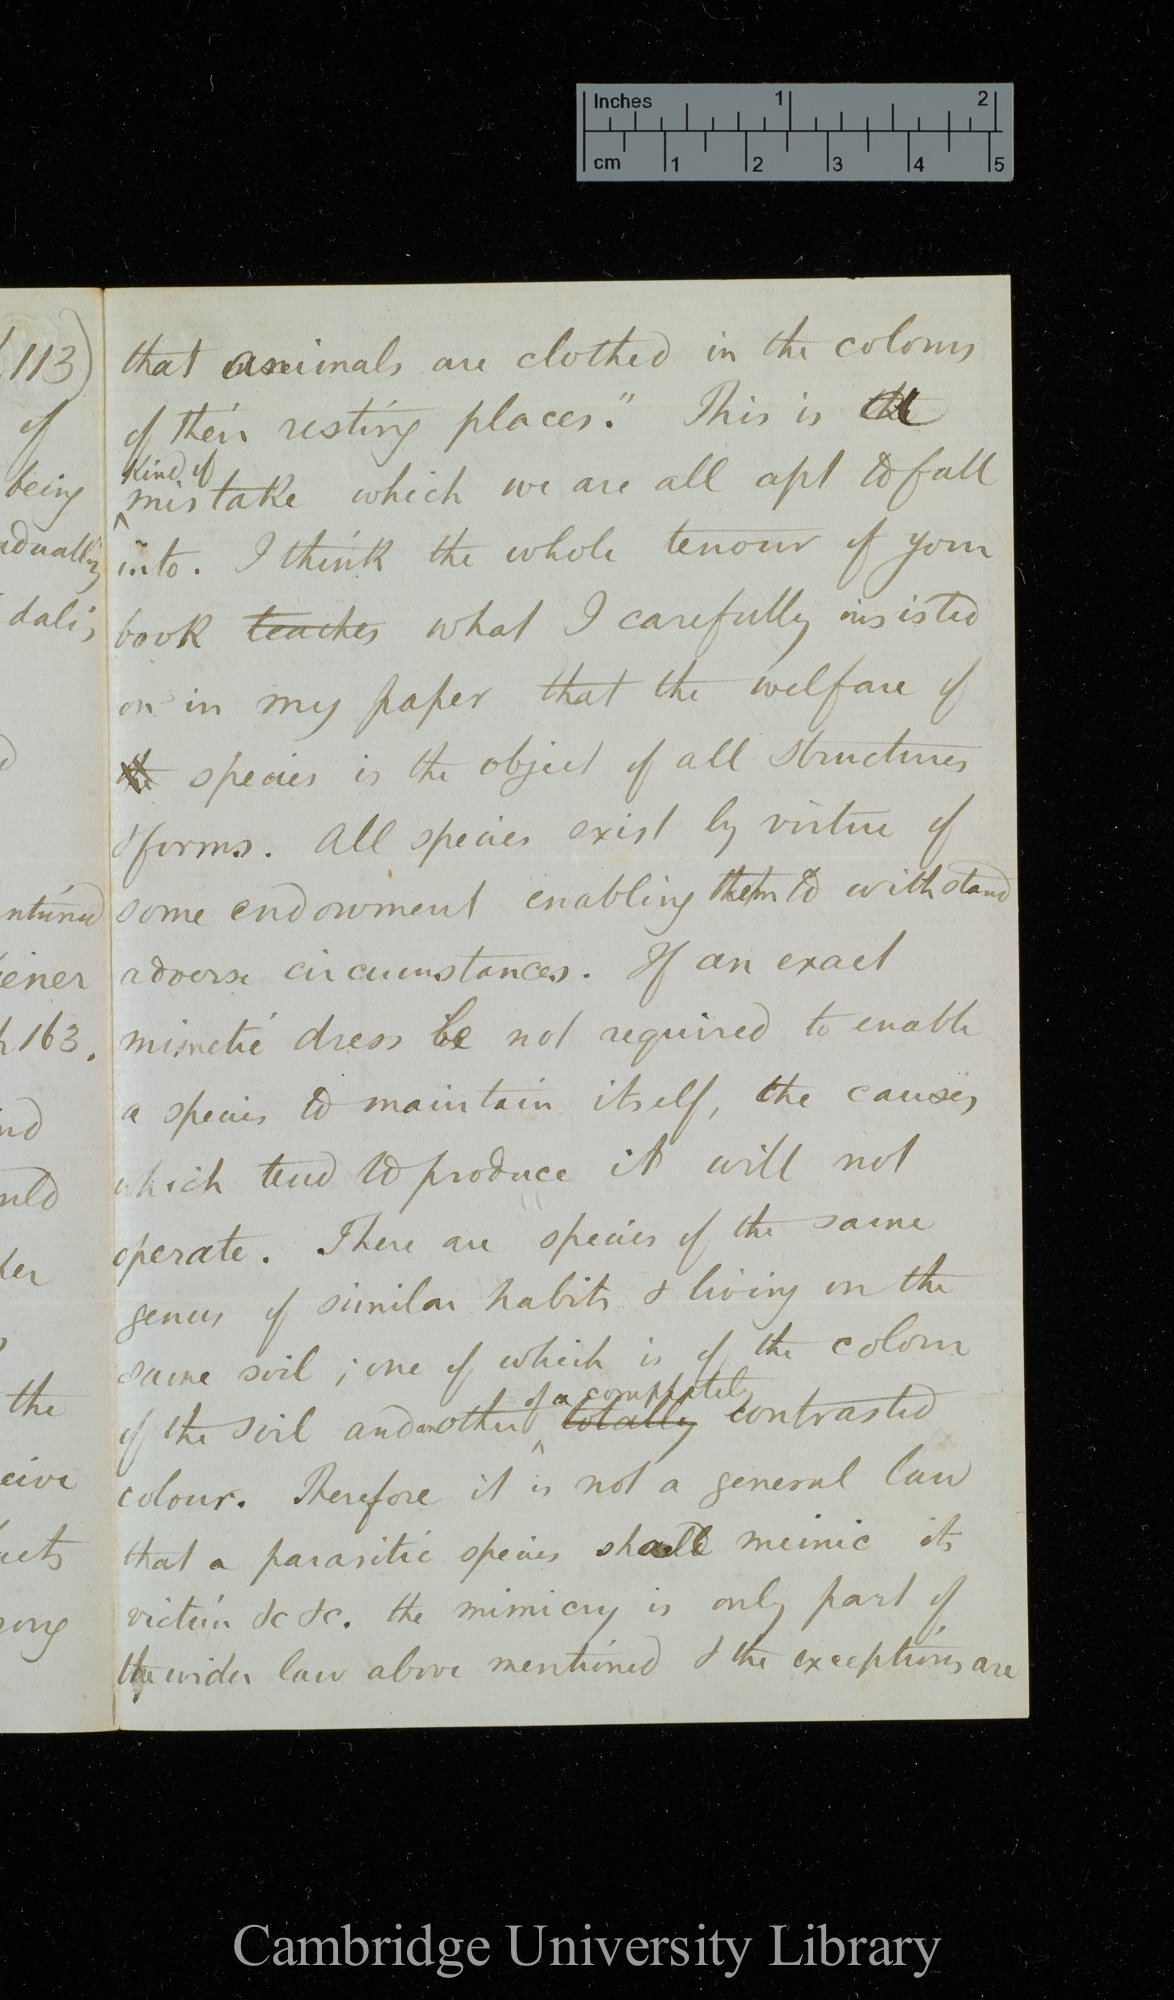 Inches 1 2
cm 1 2 3 4 5
113)
of
being
adually
dali,
ntioned
iener
h 163.
nd
uld
her
the
eive
ects
rong
that animals are clothed in the colours
of their resting places." This is the
kind of
mistake which we are all apt to fall
into. I think the whole tenour of your
book teaches what I carefully insisted
on in my paper that the welfare of
the species is the object of all structures
& forms. All species exist by virtue of
some endowment enabling them to withstand
adverse circumstances. If an exact
mimetic dress be not required to enable
a species to maintain itself, the causes
which tend to produce it will not
operate. There are species of the same
genus of similar habits & living on the
same soil; one of which is of the colour
of a completely
of the soil and another totally contrasted
colour. Therefore it is not a general law
that a parasitic species shall mimic its
victim &c &c. the mimicry is only part of
the wider law above mentioned & the exceptions are
Cambridge University Library